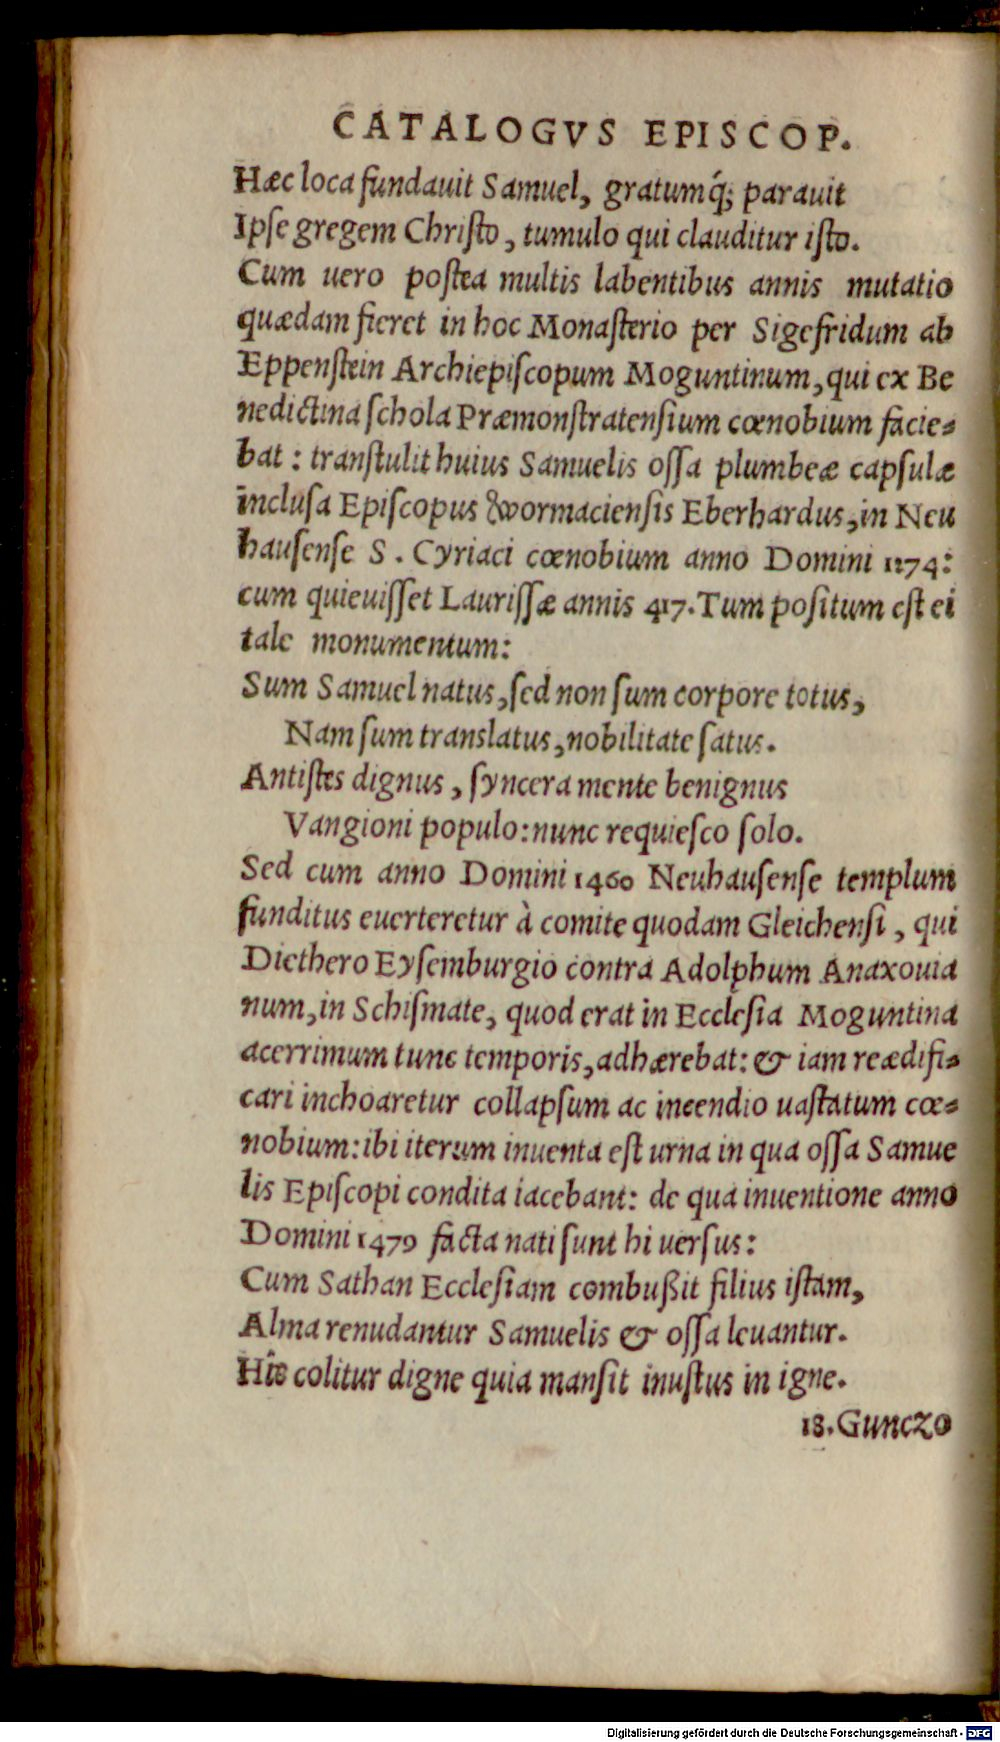 CATALOGVS EPISCOP.
Hæc loca fundauit Samuel, gratumq́; parauit
Ipſe gregem Chriſto, tumulo qui clauditur iſto.
Cum uero poſtea multis labentibus annis mutatio
quædam fieret in hoc Monaſterio per Sigefridum ab
Eppenſtein Archiepiſcopum Moguntinum, qui ex Be
nedictina ſchola Præmonſtratenſium cœnobium facie⸗
bat: tranſtulit huius Samuelis oſſa plumbeæ capſulæ
incluſa Epiſcopus Wormacienſis Eberhardus, in Neu
hauſenſe S. Cyriaci cœnobium anno Domini 1274:
cum quieuiſſet Lauriſſæ annis 417. Tum poſitum eſt ei
tale monumentum:
Sum Samuel natus, ſed non ſum corpore totus,
Nam ſum translatus, nobilitate ſatus.
Antiſtes dignus, ſyncera mente benignus
Vangioni populo: nunc requieſco ſolo.
Sed cum anno Domini 1460 Neuhauſenſe templum
funditus euerteretur à comite quodam Gleichenſi, qui
Diethero Eyſemburgio contra Adolphum Anaxouia
num, in Schiſmate, quod erat in Eccleſia Moguntina
acerrimum tunc temporis, adhærebat: & iam reædifi⸗
cari inchoaretur collapſum ac incendio uaſtatum cœ⸗
nobium: ibi iterum inuenta eſt urna in qua oſſa Samue
lis Epiſcopi condita iacebant: de qua inuentione anno
Domini 1479 facta nati ſunt hi uerſus:
Cum Sathan Eccleſiam combußit filius iſtam,
Alma renudantur Samuelis & oſſa leuantur.
Hîc colitur digne quia manſit inuſtus in igne.
18. Gunczo
Digitalisierung gefördert durch die Deutsche Forschungsgemeinschaft - DFG